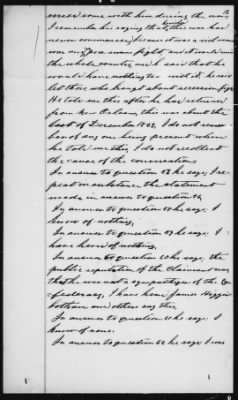 him during the war
I remember his saying that this war was
never necessary,
was not poor man fight, and it would ruin
the whole country, and he said that he
would have nothing to do with it, he would
let those who brought about secession fight
He told me this after he had returned
from New Orleans, this was about the
last of December 1862, I do not remem-
ber of any one being present when
he told me this, I do not recollect
the causes of the conversations
In answer to question he says; I re-
peat in substance the statement
made in answer to question
In answer to question he says; I
know of nothing,
In answer to question he says. I
have heard of nothing,
In answer to question he says. the
public reputation of the Claimant was
that he was not a sympathizer of the Con-
federacy, I have heard James Higgin
botham and others say this,
In answer to question he says. I
know of none.
In answer to question he says; I was